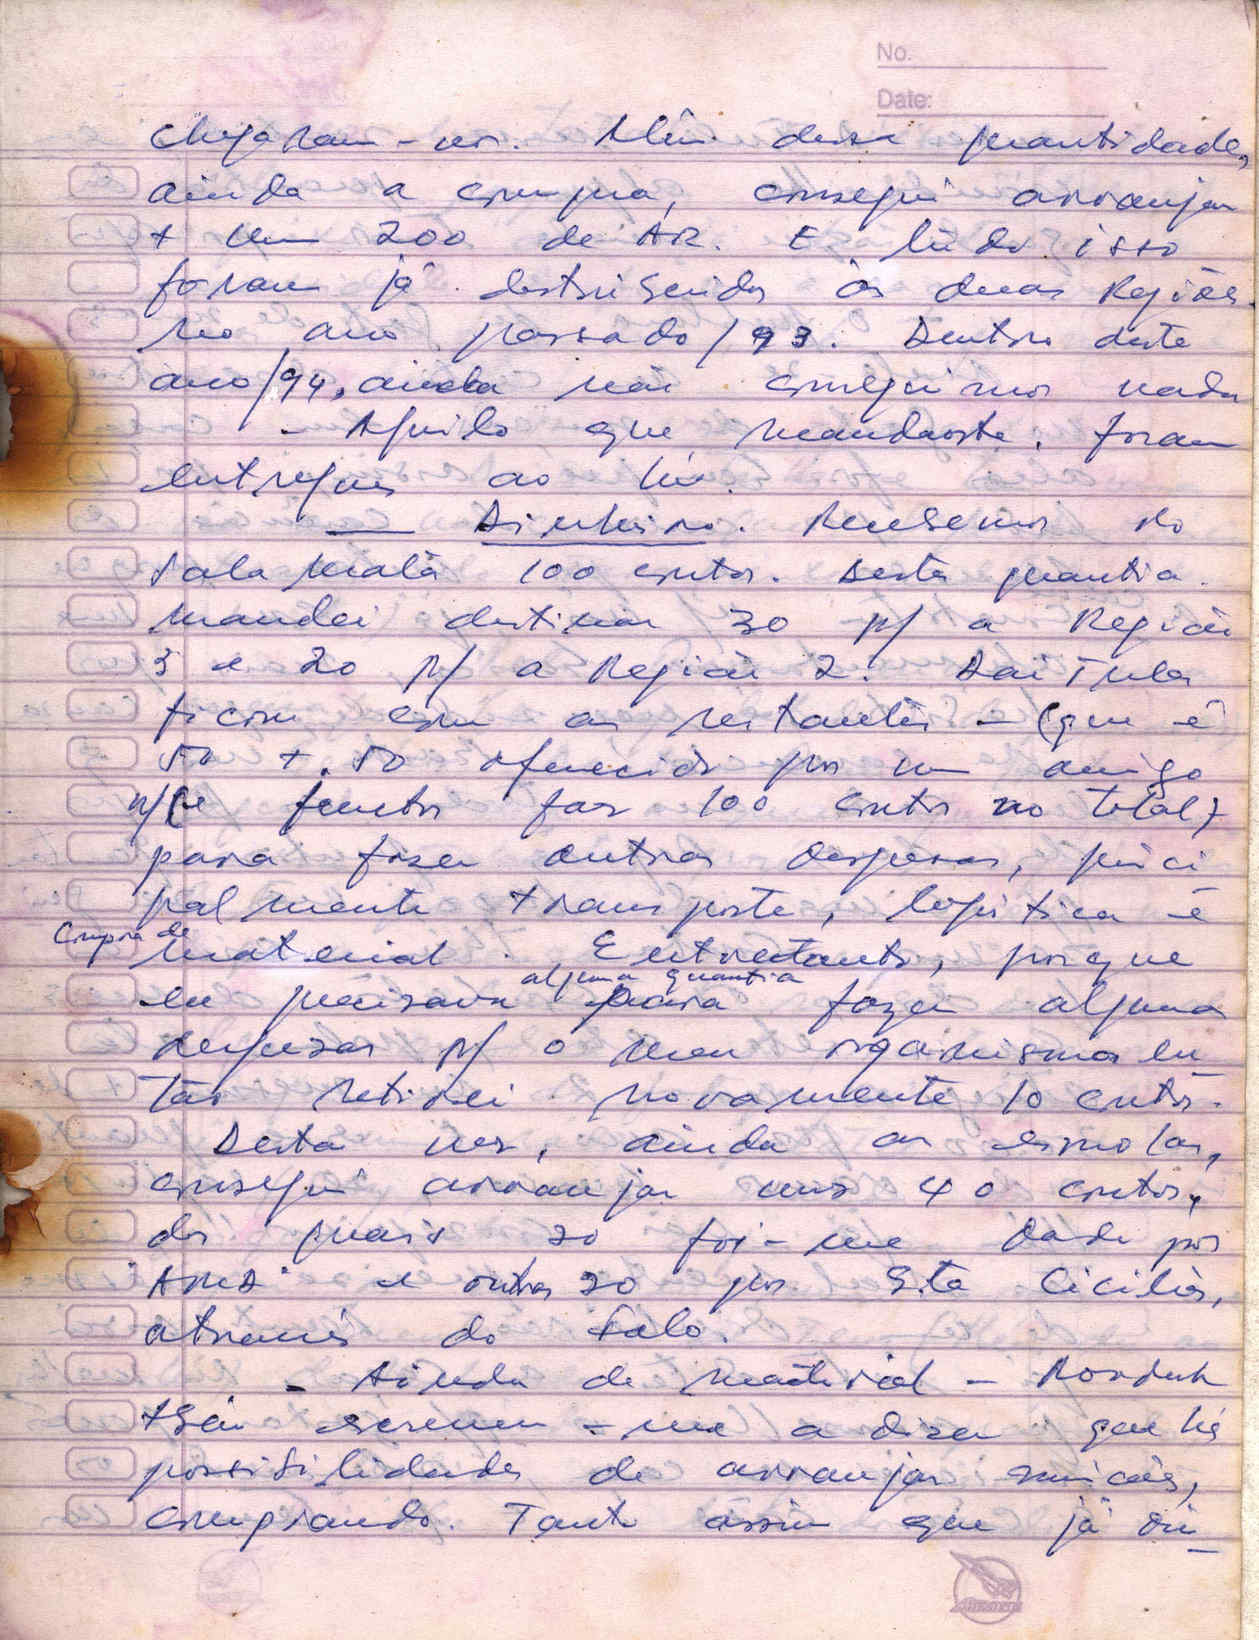 No.
Date:
chegaram-nos. Além dessa quantidade,
ainda a compra, consegui arranjar
+ um 200 de AR. E tudo isso
foram já distribuidos às duas Regiões.
no ano passado/93. Dentro deste
ano/94, ainda não conseguimos nada
- Aquilo que mandaste, foram
entregues ao
— Dinheiro. Recebemos do
Sala Mata 100 contos. Desta quantia
mandei destinar 30 p/ a Região
3 e 20 p/ a Região 2. Daitula
ficou com as restantes - (que é
50 + 50 oferecido por um amigo
n/ e juntos faz 100 contos no total)
para fazer outras despesas, princi
palmente transporte, logística e
Compra de
material. Entretanto, porque
alguma quantia
eu precisava para fazer alguma
despesas p/ o meu organismo en_
tão retirei novamente 10 contos.
Desta vez, ainda as esmolas,
consegui arranjar uns 40 contos,
dos quais 20 foi-me dado por
e outros 20 por Sta Cicília,
através do Saló.
- Ainda de material -
escreveu-me a dizer que há
possibilidades de arranjar munições,
comprando. Tanto assim que já